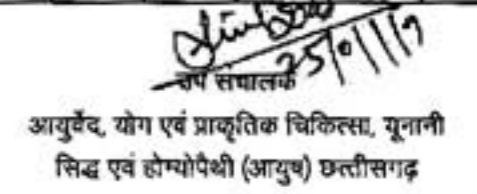 25/01/19
उप संचालक
आयुर्वेद, योग एवं प्राकृतिक चिकित्सा, यूनानी
सिद्ध एवं होम्योपैथी (आयुष) छत्तीसगढ़